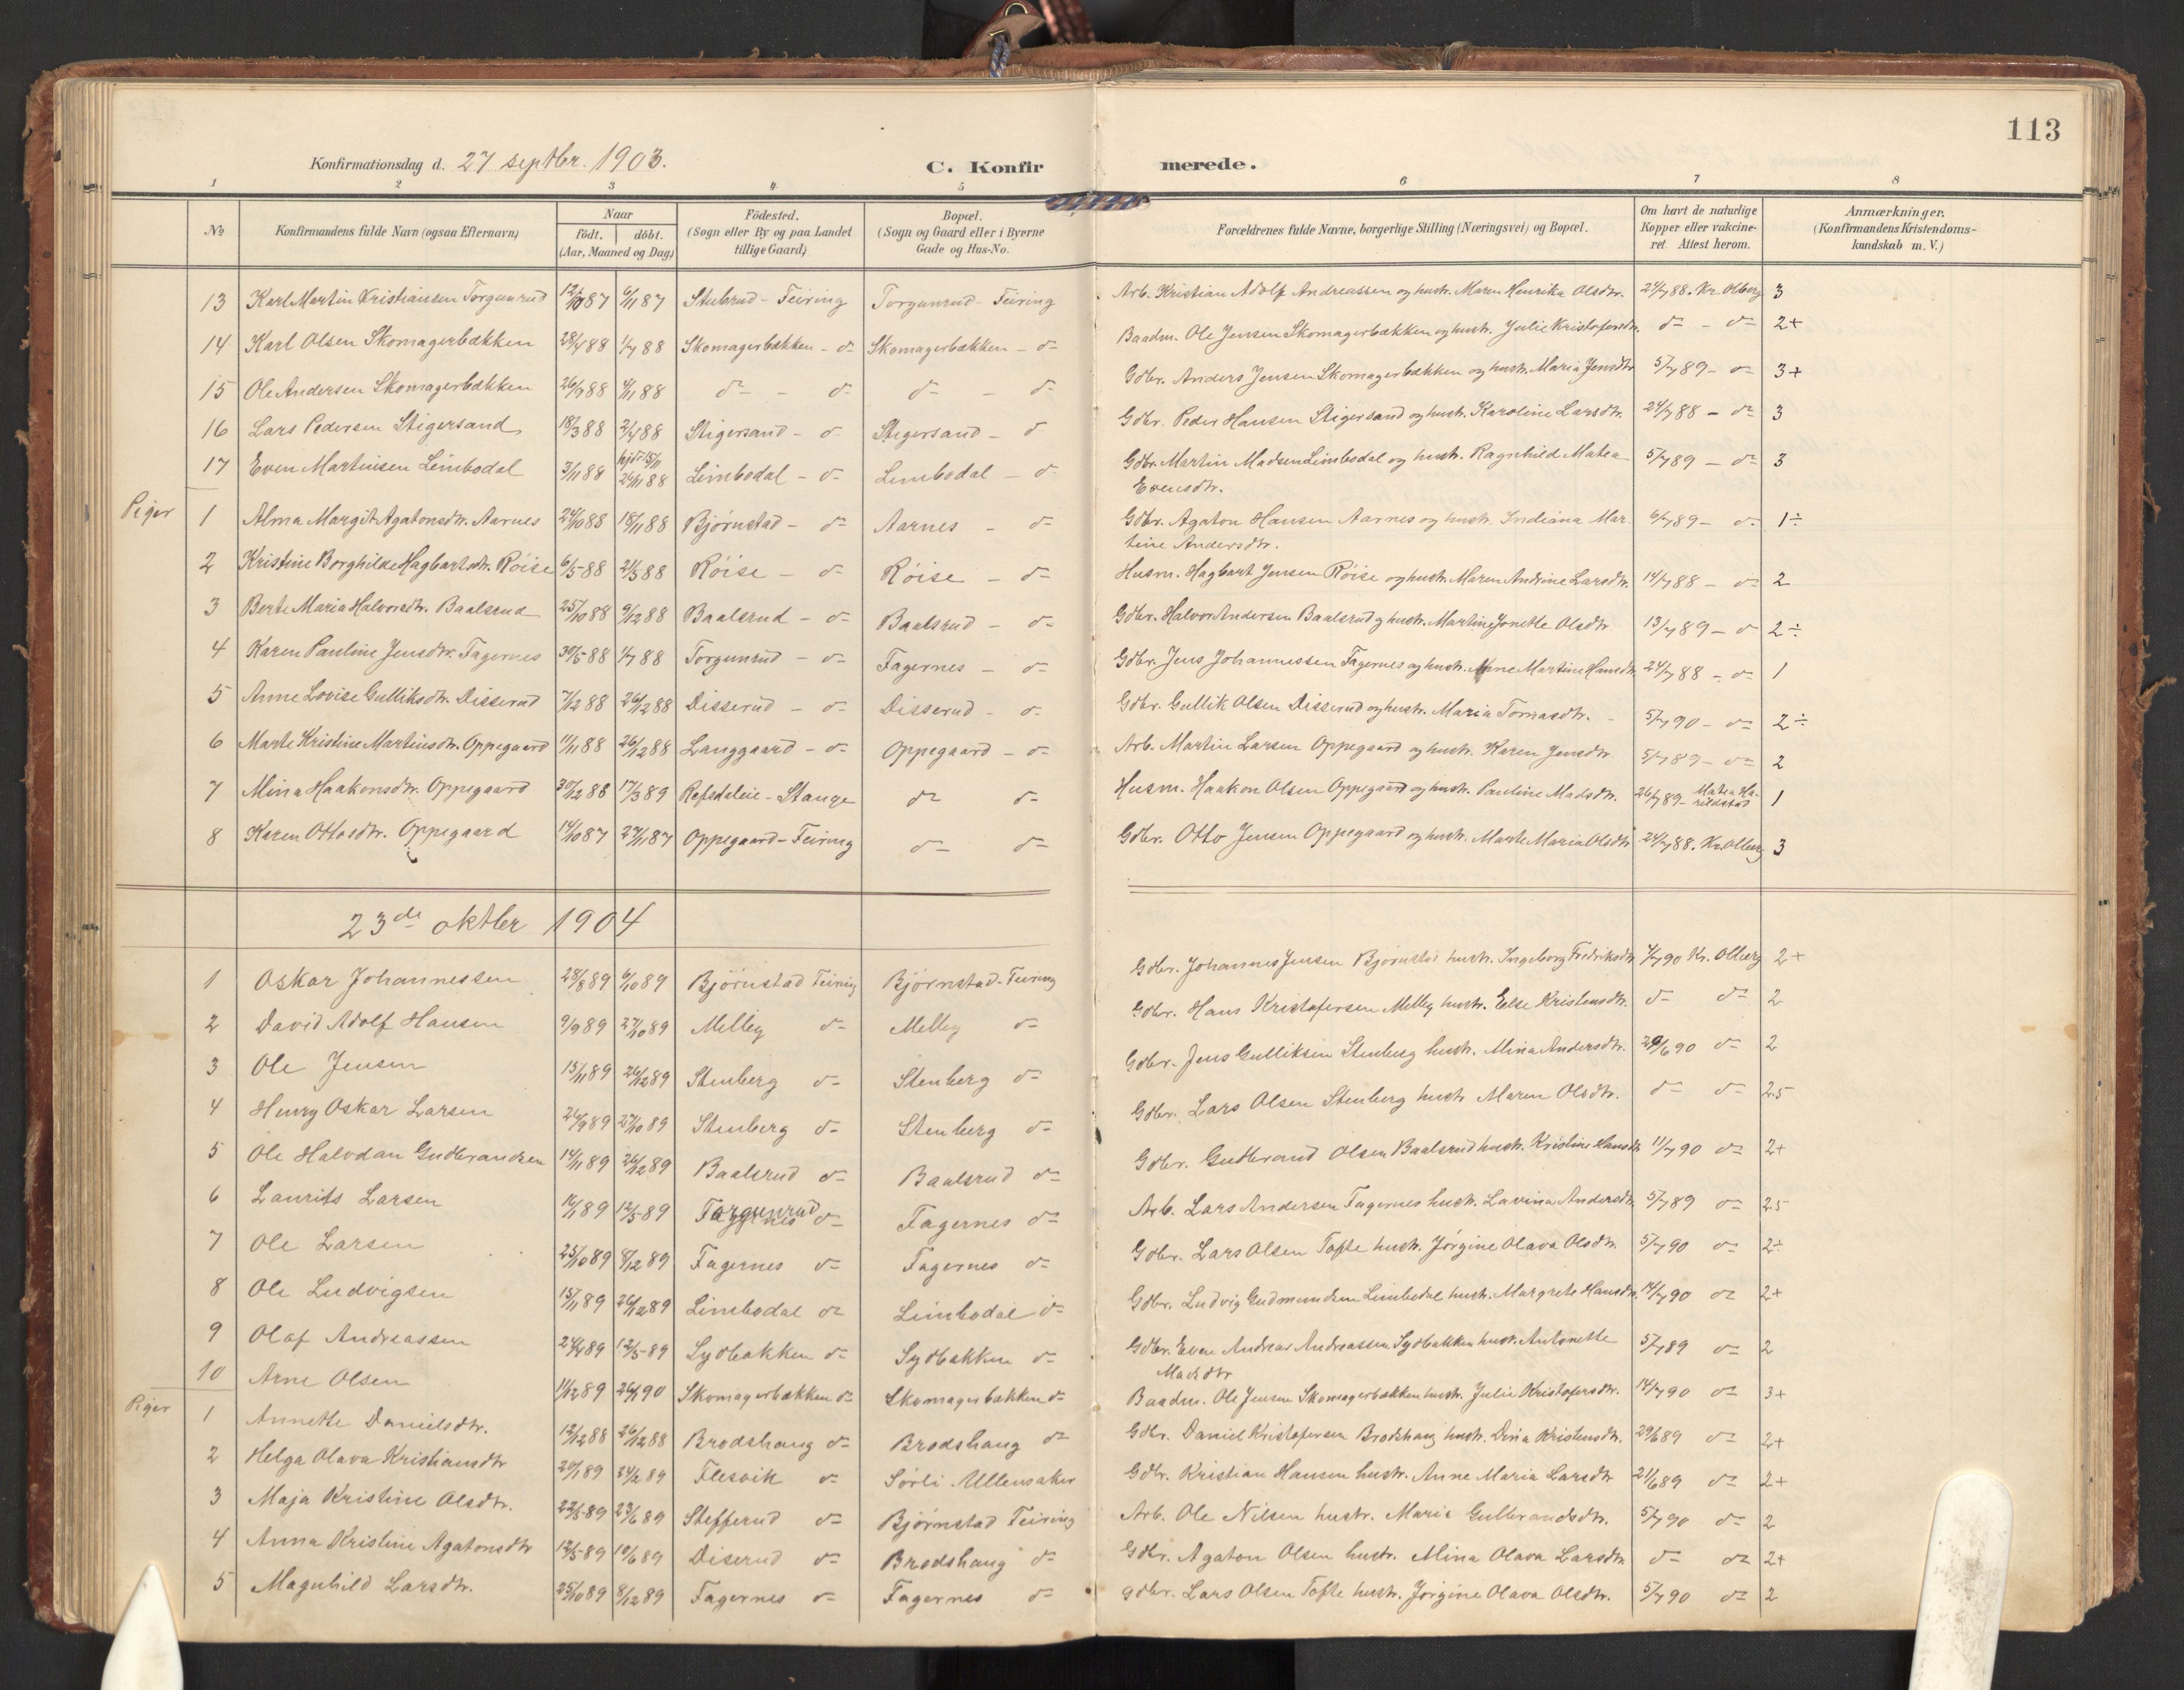 113
Konfirmationsdag d. 27 septbr. 1903.
C. Konfirmerede.
1 2 3 4 5 6 7 8
No
Konfirmandens fulde Navn (ogsaa Efternavn)
Naar
födt. döbt.
(Aar, Maaned og Dag)
Födested.
(Sogn eller By og paa Landet
tillige Gaard)
Bopæl.
(Sogn og Gaard eller i Byerne
Gade og Hus-No.
Forældrenes fulde Navne, borgerlige Stilling (Næringsvei) og Bopæl.
Om havt de naturlige
Kopper eller vakcine-
ret. Attest herom.
Anmærkninger.
(Konfirmandens Kristendoms-
kundskab m. V.)
13 Karl Martin Kristiansen Torgunrud 12/10 87 6/11 87 Stubrud - Feiring Torgunrud - Feiring Arb. Kristian Adolf Andreassen og hustr. Maren Henrika Olsdtr. 24/7 88. Kr. Olberg 3
14 Karl Olsen Skomagerbækken 28/4 88 1/7 88 Skomagerbækken - do Skomagerbækken - do Baadm. Ole Jensen Skomagerbækken og hustr. Julie Kristofersdtr. do - do 2+
15 Ole Andersen Skomagerbækken 26/9 88 4/11 88 do - do do - do Gdbr. Anders Jensen Skomagerbækken og hustr. Maria Jensdtr 5/7 89 - do 3+
16 Lars Pedersen Stigersand 18/3 88 2/4 88 Stigersand - do Stigersand - do Gdbr. Peder Hansen Stigersand og hustr. Karoline Larsdtr. 24/7 88 - do 3
17 Even Martinsen Limbodal 3/11 88 hjdt 15/11 26/11 88 Limbodal - do Limbodal - do Gdbr. Martin Madsen Limbodal og hustr. Ragnhild Matea 5/7 89 - do 3
Evensdtr.
Piger 1 Alma Margit Agatonsdtr. Aarnes 24/10 88 18/11 88 Bjørnstad - do Aarnes - do Gdbr. Agaton Hansen Aarnes og hustr. Indiana Mar- 6/7 89 - do 1÷
tine Andersdtr.
2 Kristine Borghilde Hagbartsdtr. Röise 6/5 88 21/5 88 Röise - do Röise - do Husm. Hagbart Jensen Röise og hustr. Maren Andrine Larsdtr. 14/7 88 - do 2
3 Berte Maria Halvorsdtr. Baalsrud 25/10 88 9/12 88 Baalsrud - do Baalsrud - do Gdbr. Halvor Andersen Baalsrud og hustr. Martine Jonette Olsdtr. 13/7 89 - do 2÷
4 Karen Pauline Jensdtr. Fagernes 30/5 88 1/7 88 Torgunrud - do Fagernes - do Gdbr. Jens Johannessen Fagernes og hustr. Anne Martine Hansdtr 24/7 88 - do 1
5 Anne Lovise Gulliksdtr. Disserud 7/12 88 26/12 88 Disserud - do Disserud - do Gdbr. Gullik Olsen Disserud og hustr. Maria Tomasdtr. - 5/7 90 - do 2÷
6 Marte Kristine Martinsdtr. Oppegaard 11/11 88 26/12 88 Langgaard - do Oppegaard - do Arb. Martin Larsen Oppegaard og hustr. Karen Jensdtr 5/7 89 - do 2
7 Mina Haakonsdtr. Oppegaard 30/12 88 17/3 89 Refsdaleie - Stange do do Husm. Haakon Olsen Oppegaard og hustr. Pauline Madsdtr. 26/7 89 - Matea Ha- 1
rildstad
8 Karen Ottosdtr. Oppegaard 14/10 87 27/11 87 Oppegaard - Feiring do do Gdbr. Otto Jensen Oppegaard og hustr. Marte Maria Olsdtr 24/7 88. Kr. Olberg 3
23de oktbr 1904
1 Oskar Johannessen 28/8 89 6/10 89 Bjørnstad Feiring Bjørnstad - Feiring Gdbr. Johannes Jensen Bjørnstad hustr. Ingeborg Fredriksdtr 4/7 90 Kr. Olberg 2+
2 David Adolf Hansen 9/9 89 27/10 89 Melby do Melby do Gdbr. Hans Kristofersen Melby hustr. Else Kristensdtr. do do 2
3 Ole Jensen 15/11 89 26/12 89 Stenberg do Stenberg do Gdbr. Jens Gulliksen Stenberg hustr. Mina Andersdtr. 29/6 90 do 2
4 Henry Oskar Larsen 26/9 89 27/10 89 Stenberg do Stenberg do Gdbr. Lars Olsen Stenberg hustr Maren Olsdtr. do do 2.5
5 Ole Halvdan Gudbrandsen 14/11 89 26/12 89 Baalsrud do Baalsrud do Gdbr. Gudbrand Olsen Baalsrud hustr. Kristine Hansdtr 11/7 90 do 2+
6 Laurits Larsen 16/1 89 12/5 89 Torgunrud do Fagernes do Arb. Lars Andersen Fagernes hustr. Lavina Andersdtr 5/7 89 do 2.5
7 Ole Larsen 25/10 89 8/12 89 Fagernes do Fagernes do Gdbr. Lars Olsen Tofte hustr. Jørgine Olava Olsdtr. 5/7 90 do 2÷
8 Ole Ludvigsen 15/11 89 26/12 89 Limbodal do Limbodal do Gdbr. Ludvig Gudmundsen Limbodal hustr. Margrete Hansdtr. 14/7 90 do 2+
9 Olaf Andreassen 24/4 89 12/5 89 Sydbakken do Sydbakken do Gdbr. Even Andreas Andreassen Sydbakken hustr. Antonette 5/7 89 do 2
Madsdtr
10 Arne Olsen 11/12 89 26/1 90 Skomagerbækken do Skomagerbækken do Baadm. Ole Jensen Skomagerbækken hustr. Julie Kristofersdtr. 14/7 90 do 3+
Piger 1 Annette Danielsdtr. 12/12 88 26/12 88 Brodshaug do Brodshaug do Gdbr. Daniel Kristofersen Brodshaug hustr. Dina Kristensdtr. 29/6 89 do 2+
2 Helga Olava Kristiansdtr 20/1 89 24/2 89 Flesvik do Sørli - Ullensaker Gdbr. Kristian Hansen hustr. Anne Maria Larsdtr 21/6 89 do 2+
3 Maja Kristine Olsdtr. 22/5 89 23/6 89 Stefferud do Bjørnstad Feiring Arb. Ole Nilsen hustr. Marie Gulbrandsdtr. 5/7 90 do 2
4 Anna Kristine Agatonsdtr 12/5 89 10/6 89 Diserud do Brodshaug do Gdbr. Agaton Olsen hustr. Mina Olava Larsdtr do do 2+
5 Magnhild Larsdtr. 25/10 89 8/12 89 Fagernes do Fagernes do Gdbr. Lars Olsen Tofte hustr. Jørgine Olava Olsdtr. 5/7 90 do 2